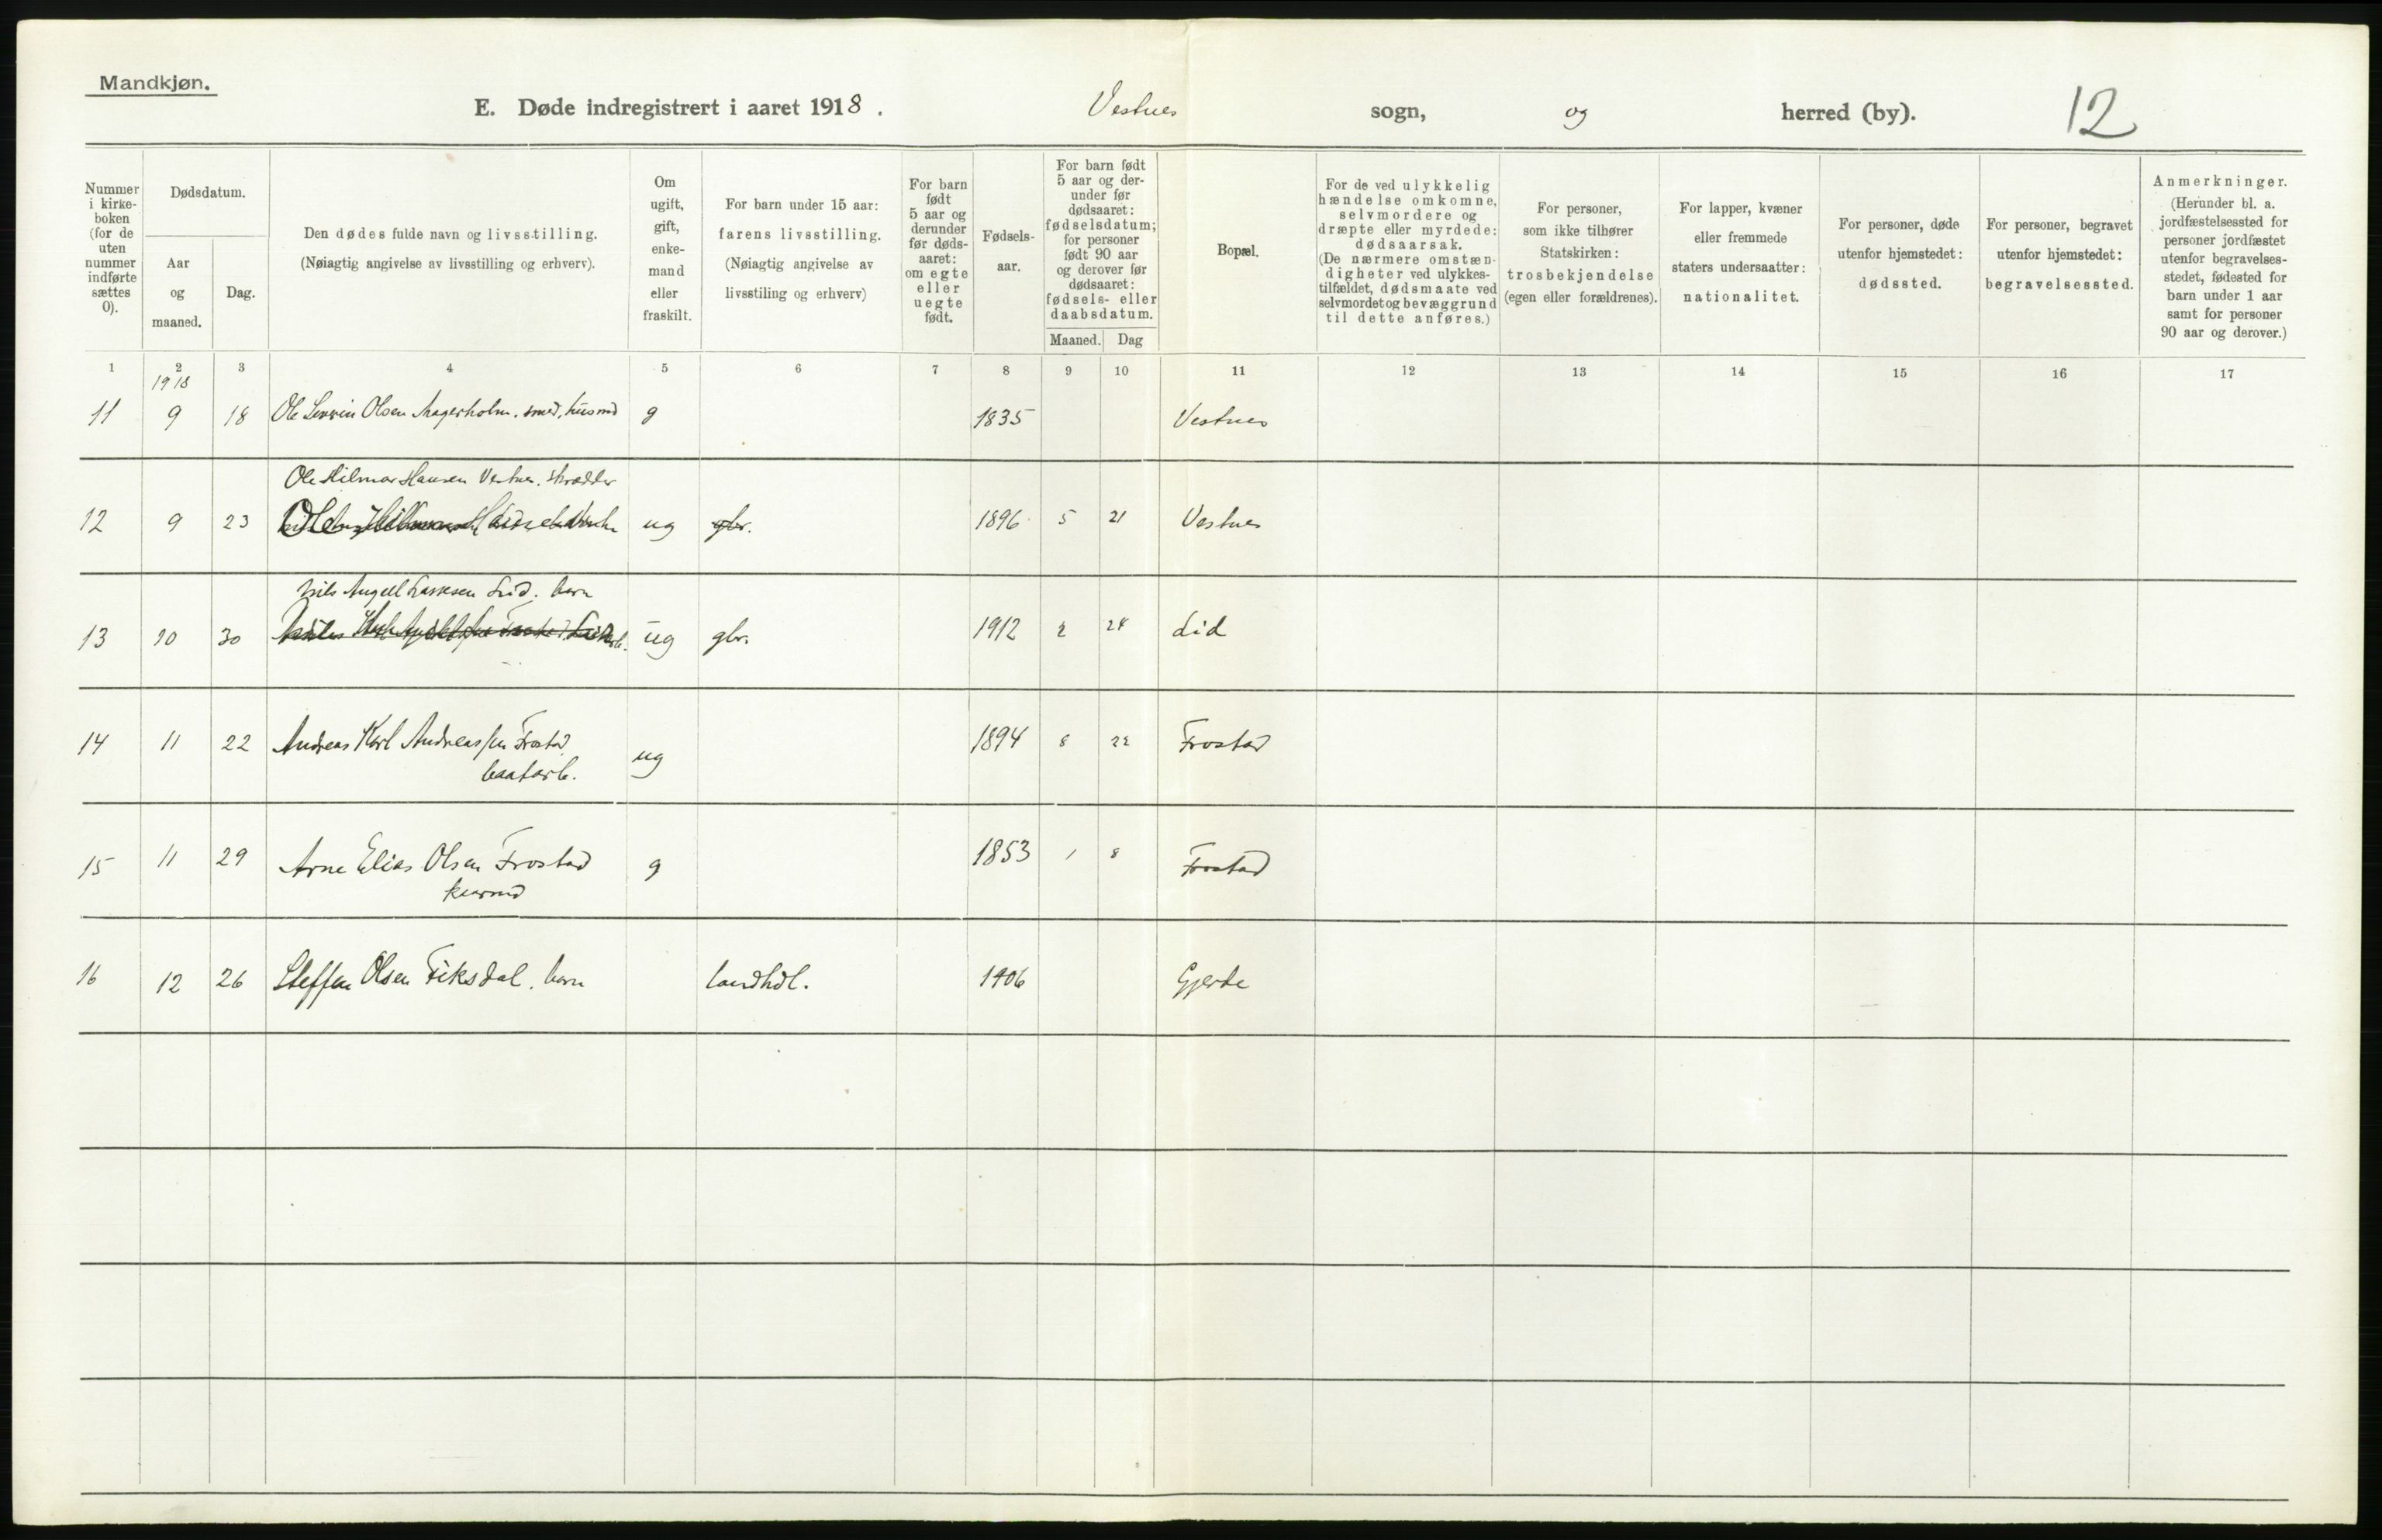 Mandkjøn.
E. Døde indregistrert i aaret 1918. Vestnes sogn, og herred (by). 12
Nummer i kirke-boken (for de uten nummer indførte sættes 0).
Dødsdatum.
Aar og maaned.
Dag.
Den dødes fulde navn og livsstilling.
(Nøiagtig angivelse av livsstilling og erhverv).
Om ugift, gift, enke-mand eller fraskilt.
For barn under 15 aar: farens livsstilling.
(Nøiagtig angivelse av livsstiling og erhverv)
For barn født 5 aar og derunder før døds-aaret: om egte eller uegte født.
Fødsels-aar.
For barn født 5 aar og der-under før dødsaaret: fødselsdatum; for personer født 90 aar og derover før dødsaaret: fødsels- eller daabsdatum.
Maaned. Dag
Bopæl.
For de ved ulykkelig hændelse omkomne, selvmordere og dræpte eller myrdede: dødsaarsak.
(De nærmere omstæn-digheter ved ulykkes-tilfældet, dødsmaate ved selvmordet og bevæggrund til dette anføres.)
For personer, som ikke tilhører Statskirken: trosbekjendelse (egen eller forældrenes).
For lapper, kvæner eller fremmede staters undersaatter: nationalitet.
For personer, døde utenfor hjemstedet: dødssted.
For personer, begravet utenfor hjemstedet: begravelsessted.
Anmerkninger.
(Herunder bl. a. jordfæstelsessted for personer jordfæstet utenfor begravelses-stedet, fødested for barn under 1 aar samt for personer 90 aar og derover.)
1 2 3 4 5 6 7 8 9 10 11 12 13 14 15 16 17
1918
11 9 18 Ole Olsen Aagerholm. smed, husmd g 1835 Vestnes
Ole Hilmar Hansen Vestnes. skrædder
12 9 23 ug gbr. 1896 5 21 Vestnes
Nils Angell Lassesen Lid. barn
13 10 30 ug gbr. 1912 2 28 Lid
14 11 22 Andreas Karl Andreassen Frostad 1894 8 22 Frostad
baatarb. ug
15 11 29 Arne Elias Olsen Frostad g 1853 1 8 Frostad
kaarmd
16 12 26 Steffen Olsen Fiksdal. barn landhdl. 1906 Gjerde